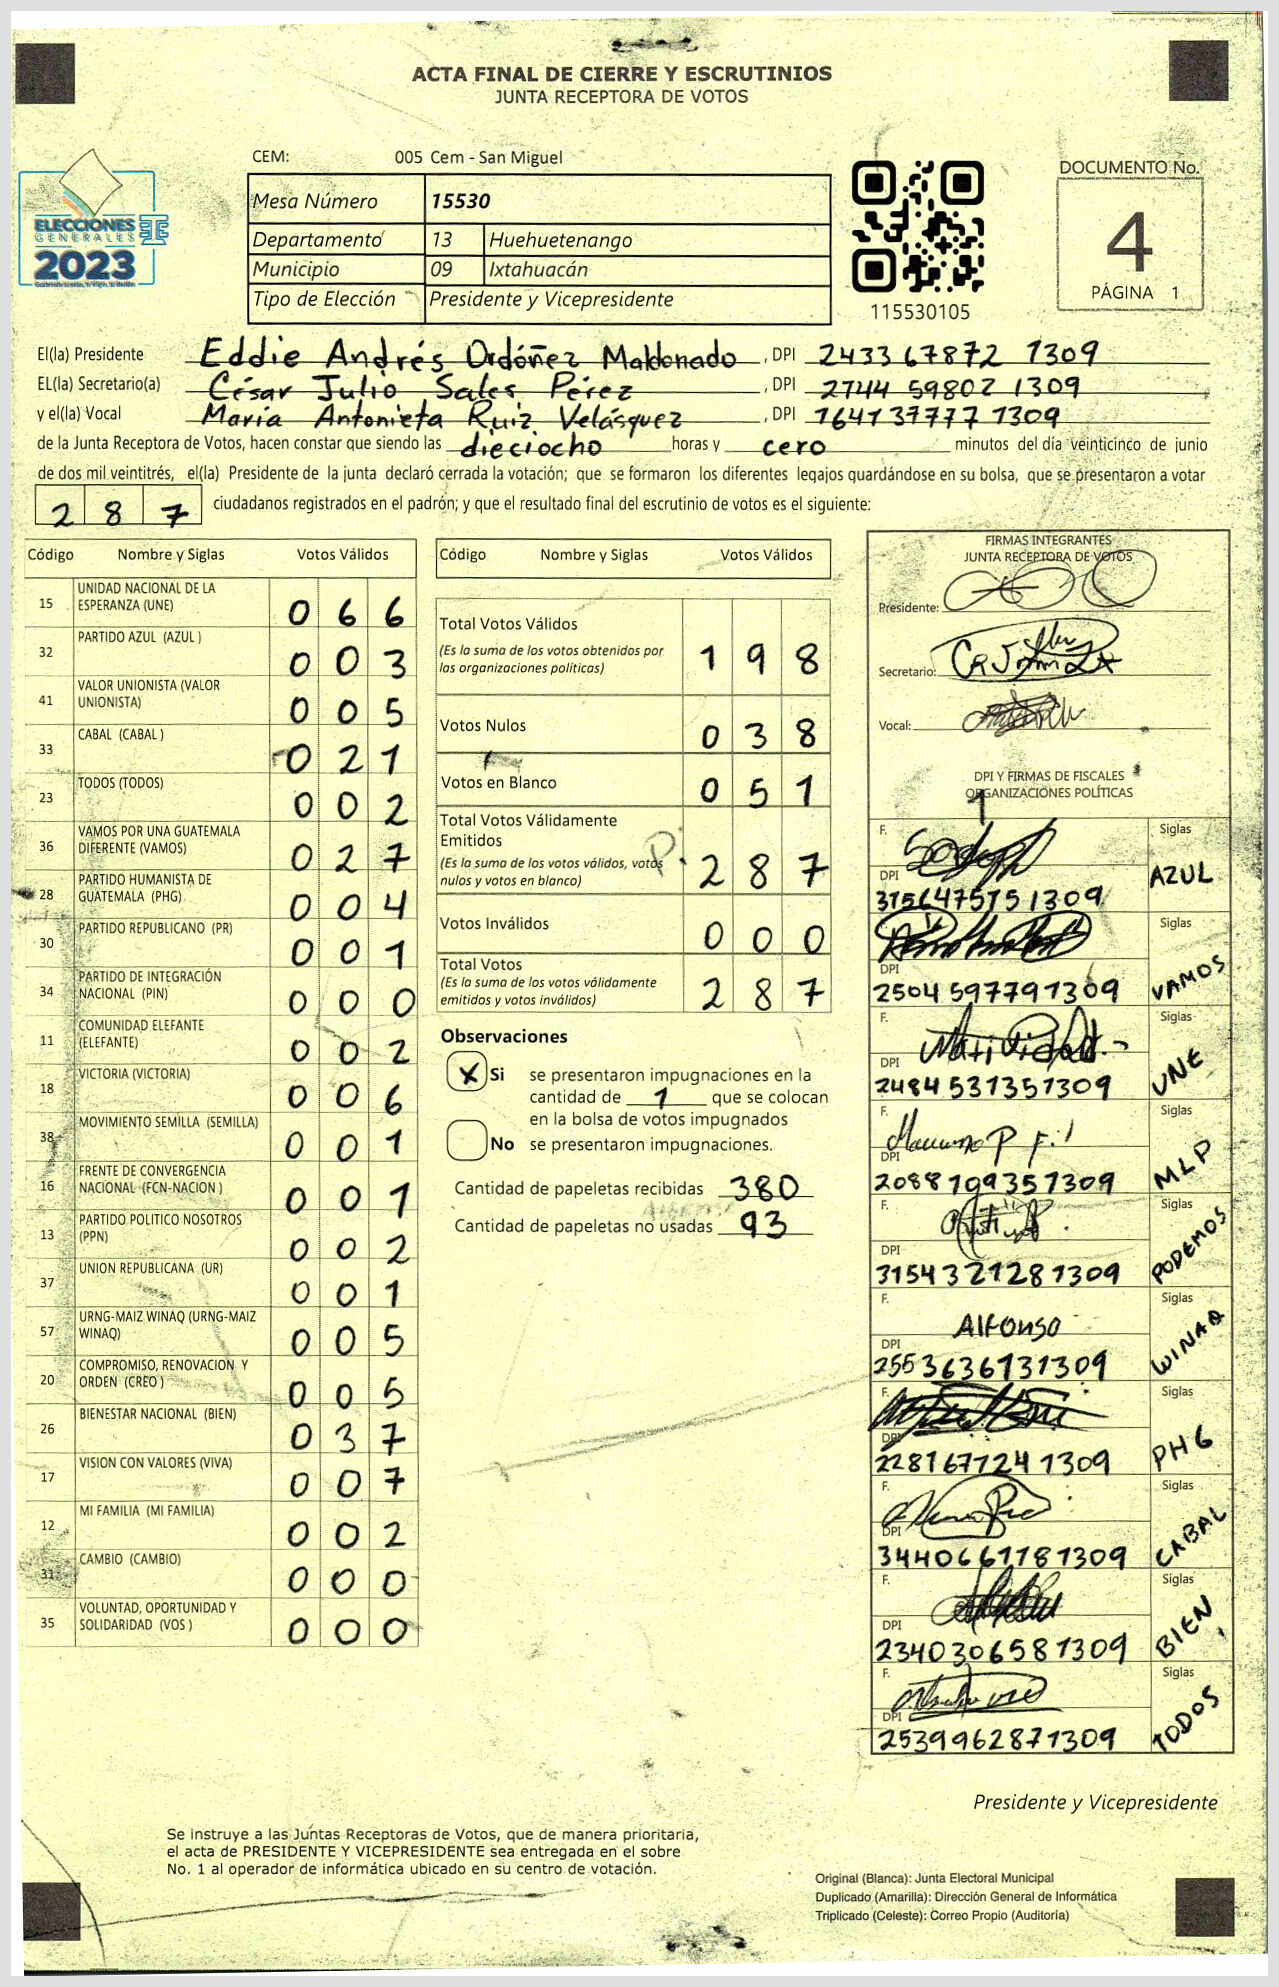 ACTA FINAL DE CIERRE Y ESCRUTINIOS
JUNTA RECEPTORA DE VOTOS
ELECCIONES
GENERALES
2023
CEM: 005 Cem - San Miguel
Mesa Número 15530
Departamento 13 Huehuetenango
Municipio 09 Ixtahuacán
Tipo de Elección Presidente y Vicepresidente
115530105
DOCUMENTO No.
4
PÁGINA 1
El(la) Presidente Eddie Andrés Ordóñez Maldonado, DPI 2433 67872 1309
EL(la) Secretario(a) César Julio Sales Pérez, DPI 2744 59802 1309
y el(la) Vocal María Antonieta Ruiz Velásquez, DPI 1641 37777 1309
de la Junta Receptora de Votos, hacen constar que siendo las dieciocho horas y cero minutos del día veinticinco de junio
de dos mil veintitrés, el(la) Presidente de la junta declaró cerrada la votación; que se formaron los diferentes legajos guardándose en su bolsa, que se presentaron a votar
287 ciudadanos registrados en el padrón; y que el resultado final del escrutinio de votos es el siguiente:
Código Nombre y Siglas Votos Válidos
15 UNIDAD NACIONAL DE LA ESPERANZA (UNE) 066
32 PARTIDO AZUL (AZUL ) 003
41 VALOR UNIONISTA (VALOR UNIONISTA) 005
33 CABAL (CABAL ) 021
23 TODOS (TODOS) 002
36 VAMOS POR UNA GUATEMALA DIFERENTE (VAMOS) 027
28 PARTIDO HUMANISTA DE GUATEMALA (PHG) 004
30 PARTIDO REPUBLICANO (PR) 001
34 PARTIDO DE INTEGRACIÓN NACIONAL (PIN) 000
11 COMUNIDAD ELEFANTE (ELEFANTE) 002
18 VICTORIA (VICTORIA) 006
38 MOVIMIENTO SEMILLA (SEMILLA) 001
16 FRENTE DE CONVERGENCIA NACIONAL (FCN-NACION ) 001
13 PARTIDO POLITICO NOSOTROS (PPN) 002
37 UNION REPUBLICANA (UR) 001
57 URNG-MAIZ WINAQ (URNG-MAIZ WINAQ) 005
20 COMPROMISO, RENOVACION Y ORDEN (CREO ) 005
26 BIENESTAR NACIONAL (BIEN) 037
17 VISION CON VALORES (VIVA) 007
12 MI FAMILIA (MI FAMILIA) 002
31 CAMBIO (CAMBIO) 000
35 VOLUNTAD, OPORTUNIDAD Y SOLIDARIDAD (VOS ) 000
Código Nombre y Siglas Votos Válidos
Total Votos Válidos 198
(Es la suma de los votos obtenidos por
las organizaciones políticas)
Votos Nulos 038
Votos en Blanco 051
Total Votos Válidamente
Emitidos 287
(Es la suma de los votos válidos, votos
nulos y votos en blanco)
Votos Inválidos 000
Total Votos 287
(Es la suma de los votos válidamente
emitidos y votos inválidos)
Observaciones
X Si se presentaron impugnaciones en la
cantidad de 1 que se colocan
en la bolsa de votos impugnados
No se presentaron impugnaciones.
Cantidad de papeletas recibidas 380
Cantidad de papeletas no usadas 93
FIRMAS INTEGRANTES
JUNTA RECEPTORA DE VOTOS
Presidente:
Secretario:
Vocal:
DPI Y FIRMAS DE FISCALES
ORGANIZACIONES POLÍTICAS
F. Siglas AZUL
DPI 3156475151309
F. Siglas VAMOS
DPI 2504597791309
F. Siglas UNE
DPI 2484531351309
F. Siglas MLP
DPI 2088109351309
F. Siglas PODEMOS
DPI 3154321281309
F. Alfonso Siglas WINAQ
DPI 2553636131309
F. Siglas PHG
DPI 2281671241309
F. Siglas CABAL
DPI 3440661181309
F. Siglas BIEN
DPI 2340306581309
F. Siglas TODOS
DPI 2539962871309
Presidente y Vicepresidente
Se instruye a las Juntas Receptoras de Votos, que de manera prioritaria,
el acta de PRESIDENTE Y VICEPRESIDENTE sea entregada en el sobre
No. 1 al operador de informática ubicado en su centro de votación.
Original (Blanca): Junta Electoral Municipal
Duplicado (Amarilla): Dirección General de Informática
Triplicado (Celeste): Correo Propio (Auditoría)